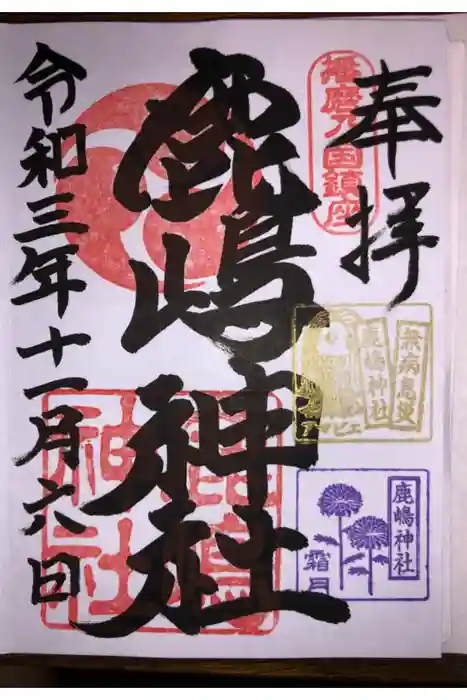 奉拝
播磨之国鎮座
鹿嶋神社
令和三年十一月六日
鹿嶋神社
無病息災
鹿嶋神社
アマビエ
鹿嶋神社
霜月